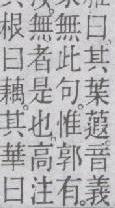 雅曰。其葉蕸。音義
無此句。惟郭有。
無者是也。高注
根曰藕。其華曰